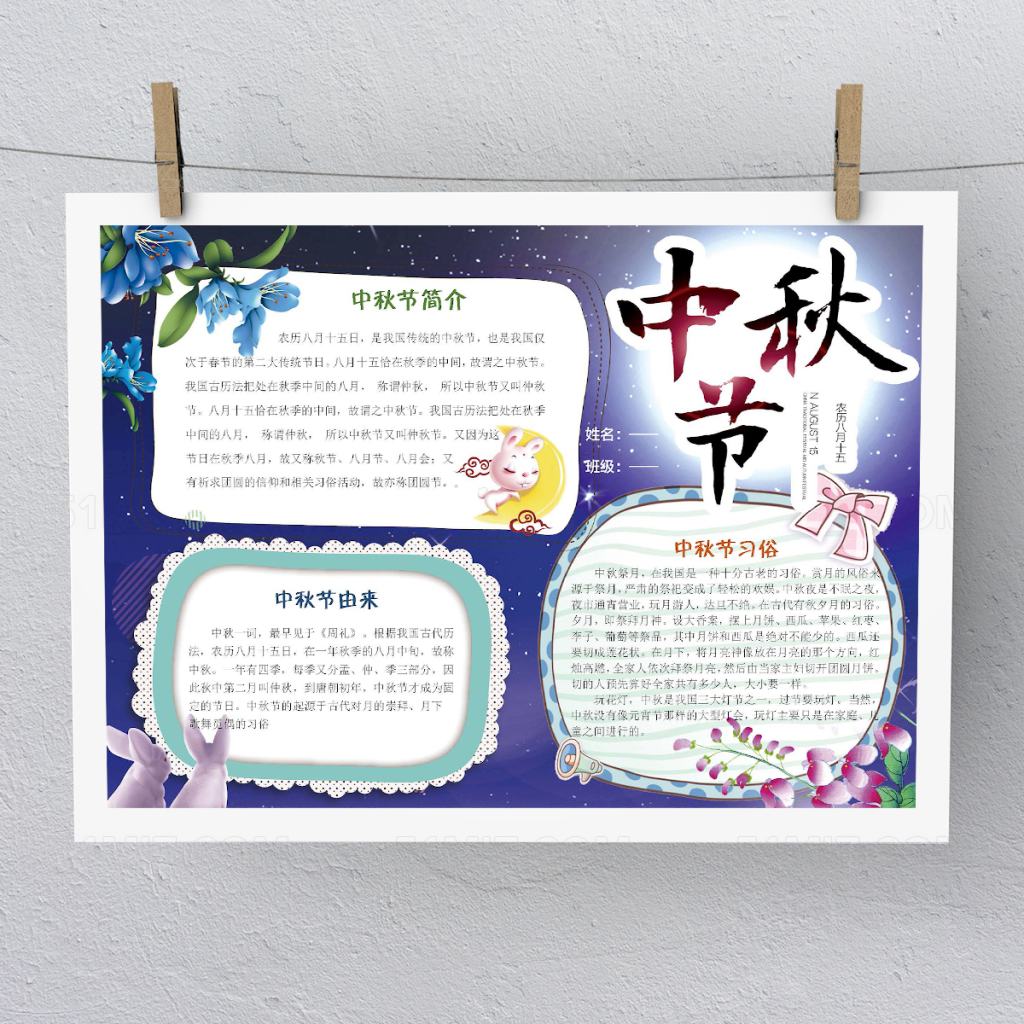 中秋节
农历八月十五
N AUGUST 15
姓名：
班级：
中秋节简介
农历八月十五日，是我国传统的中秋节，也是我国仅
次于春节的第二大传统节日。八月十五恰在秋季的中间，故谓之中秋节。
我国古历法把处在秋季中间的八月， 称谓仲秋， 所以中秋节又叫仲秋
节。八月十五恰在秋季的中间，故谓之中秋节。我国古历法把处在秋季
中间的八月， 称谓仲秋， 所以中秋节又叫仲秋节。又因为这
节日在秋季八月，故又称秋节、八月节、八月会；又
有祈求团圆的信仰和相关习俗活动，故亦称团圆节。。
中秋节由来
中秋一词，最早见于《周礼》。根据我国古代历
法，农历八月十五日，在一年秋季的八月中旬，故称
中秋。一年有四季，每季又分孟、仲、季三部分，因
此秋中第二月叫仲秋，到唐朝初年，中秋节才成为固
定的节日。中秋节的起源于古代对月的崇拜、月下
歌舞觅偶的习俗
中秋节习俗
中秋祭月，在我国是一种十分古老的习俗。赏月的风俗来
源于祭月，严肃的祭祀变成了轻松的欢娱。中秋夜是不眠之夜，
夜市通宵营业，玩月游人，达旦不绝。在古代有秋夕月的习俗。
夕月，即祭拜月神。设大香案，摆上月饼、西瓜、苹果、红枣、
李子、葡萄等祭品，其中月饼和西瓜是绝对不能少的。西瓜还
要切成莲花状。在月下，将月亮神像放在月亮的那个方向，红
烛高燃，全家人依次拜祭月亮，然后由当家主妇切开团圆月饼。
切的人预先算好全家共有多少人，大小要一样。
玩花灯，中秋是我国三大灯节之一，过节要玩灯。当然，
中秋没有像元宵节那样的大型灯会，玩灯主要只是在家庭、儿
童之间进行的。